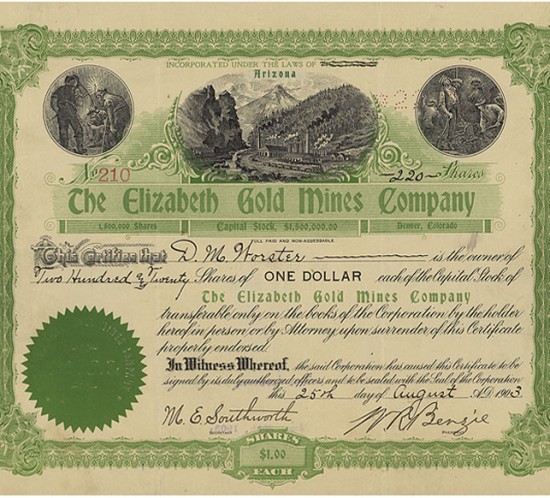 INCORPORATED UNDER THE LAWS OF
Arizona
No 210
220 Shares
The Elizabeth Gold Mines Company
1,500,000 Shares
Capital Stock, $1,500,000.00
Denver, Colorado
FULL PAID AND NON-ASSESSABLE
This Certifies that D. M. Worster is the owner of
Two Hundred & Twenty Shares of ONE DOLLAR each of the Capital Stock of
The Elizabeth Gold Mines Company
transferable only on the books of the Corporation by the holder
hereof in person or by Attorney upon surrender of this Certificate
properly endorsed.
In Witness Whereof, the said Corporation has caused this Certificate to be
signed by its duly authorized officers and to be sealed with the Seal of the Corporation
this 25th day of August A.D. 1903
M. E. Southworth
SECRETARY
SHARES
$1.00
EACH